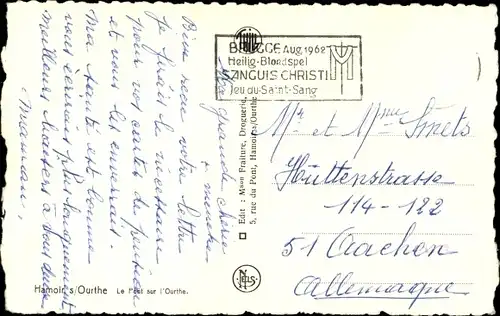 BRUGGE Aug. 1962
Heilig-Bloedspel
SANGUIS CHRISTI
Jeu du Saint-Sang
Ma grande chère
Bien reçu votre lettre
Je ferais le nécessaire
pour vos cartes de pension
et vous les enverrais.
Ma santé est bonne
vous écrirais plus longuement
meilleurs baisers à tous deux
Maman,
Edit : Mason Fraiture, Droguerie,
5, rue du Pont, Hamoir s/Ourthe
Mr et Mme Smets
Hüttenstrasse
114-122
51 Aachen
Allemagne
NELS
Hamoir s/Ourthe Le Pont sur l'Ourthe.